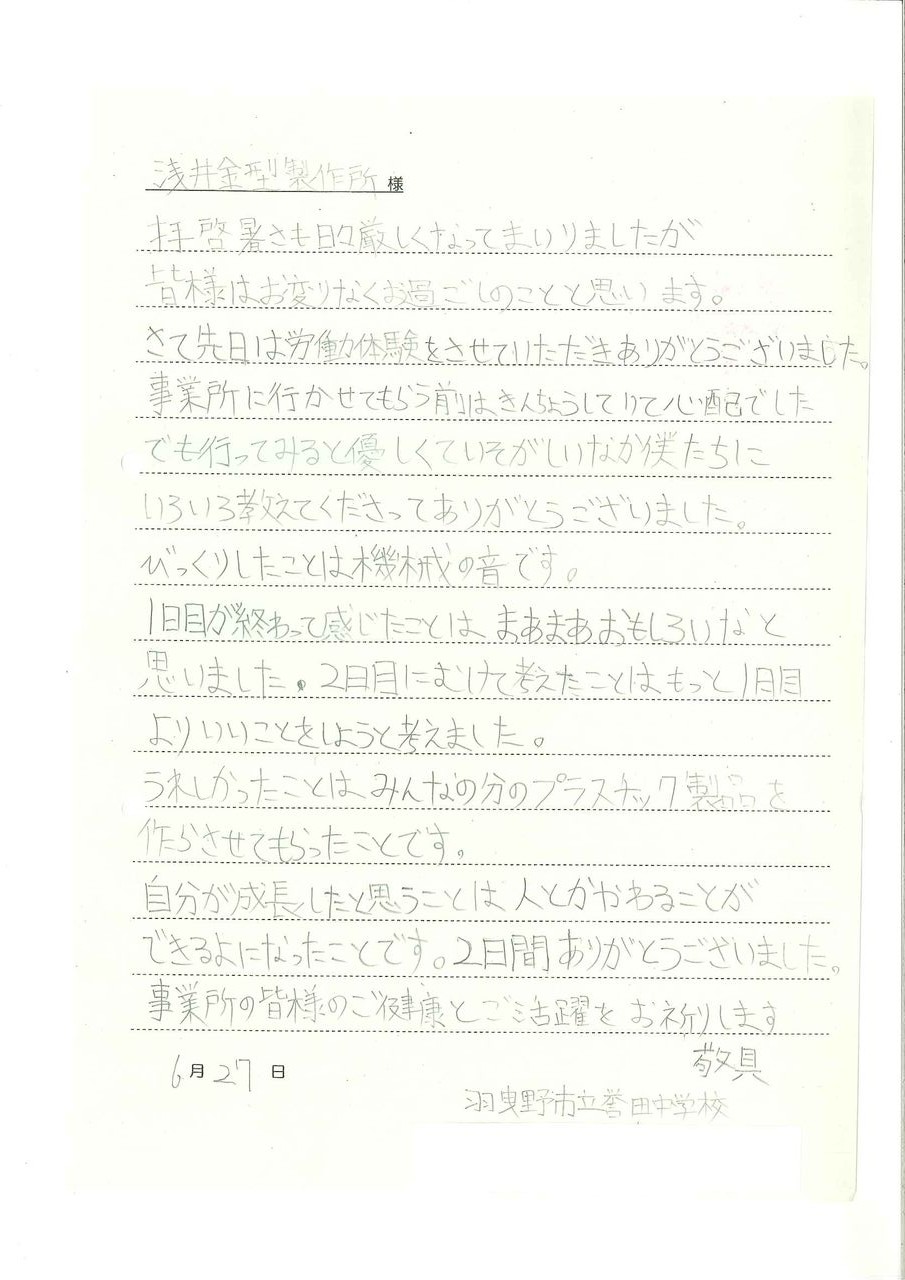 浅井金型製作所 様
拝啓暑さも日々厳しくなってまいりましたが
皆様はお変りなくお過ごしのことと思います。
さて先日は労働体験をさせていただきありがとうございました。
事業所に行かせてもらう前はきんちょうしてて心配でした
でも行ってみると優しくていそがしいなか僕たちに
いろいろ教えてくださってありがとうございました。
びっくりしたことは機械の音です。
1日目が終わって感じたことは、まあまあおもしろいなと
思いました。2日目にむけて考えたことはもっと1日目
よりいいことをしようと考えました。
うれしかったことは、みんなの分のプラスチック製品を
作らさせてもらったことです。
自分が成長したと思うことは人とかかわることが
できるよになったことです。2日間ありがとうございました。
事業所の皆様のご健康とご活躍をお祈りします
敬具
6月27日
羽曳野市立誉田中学校